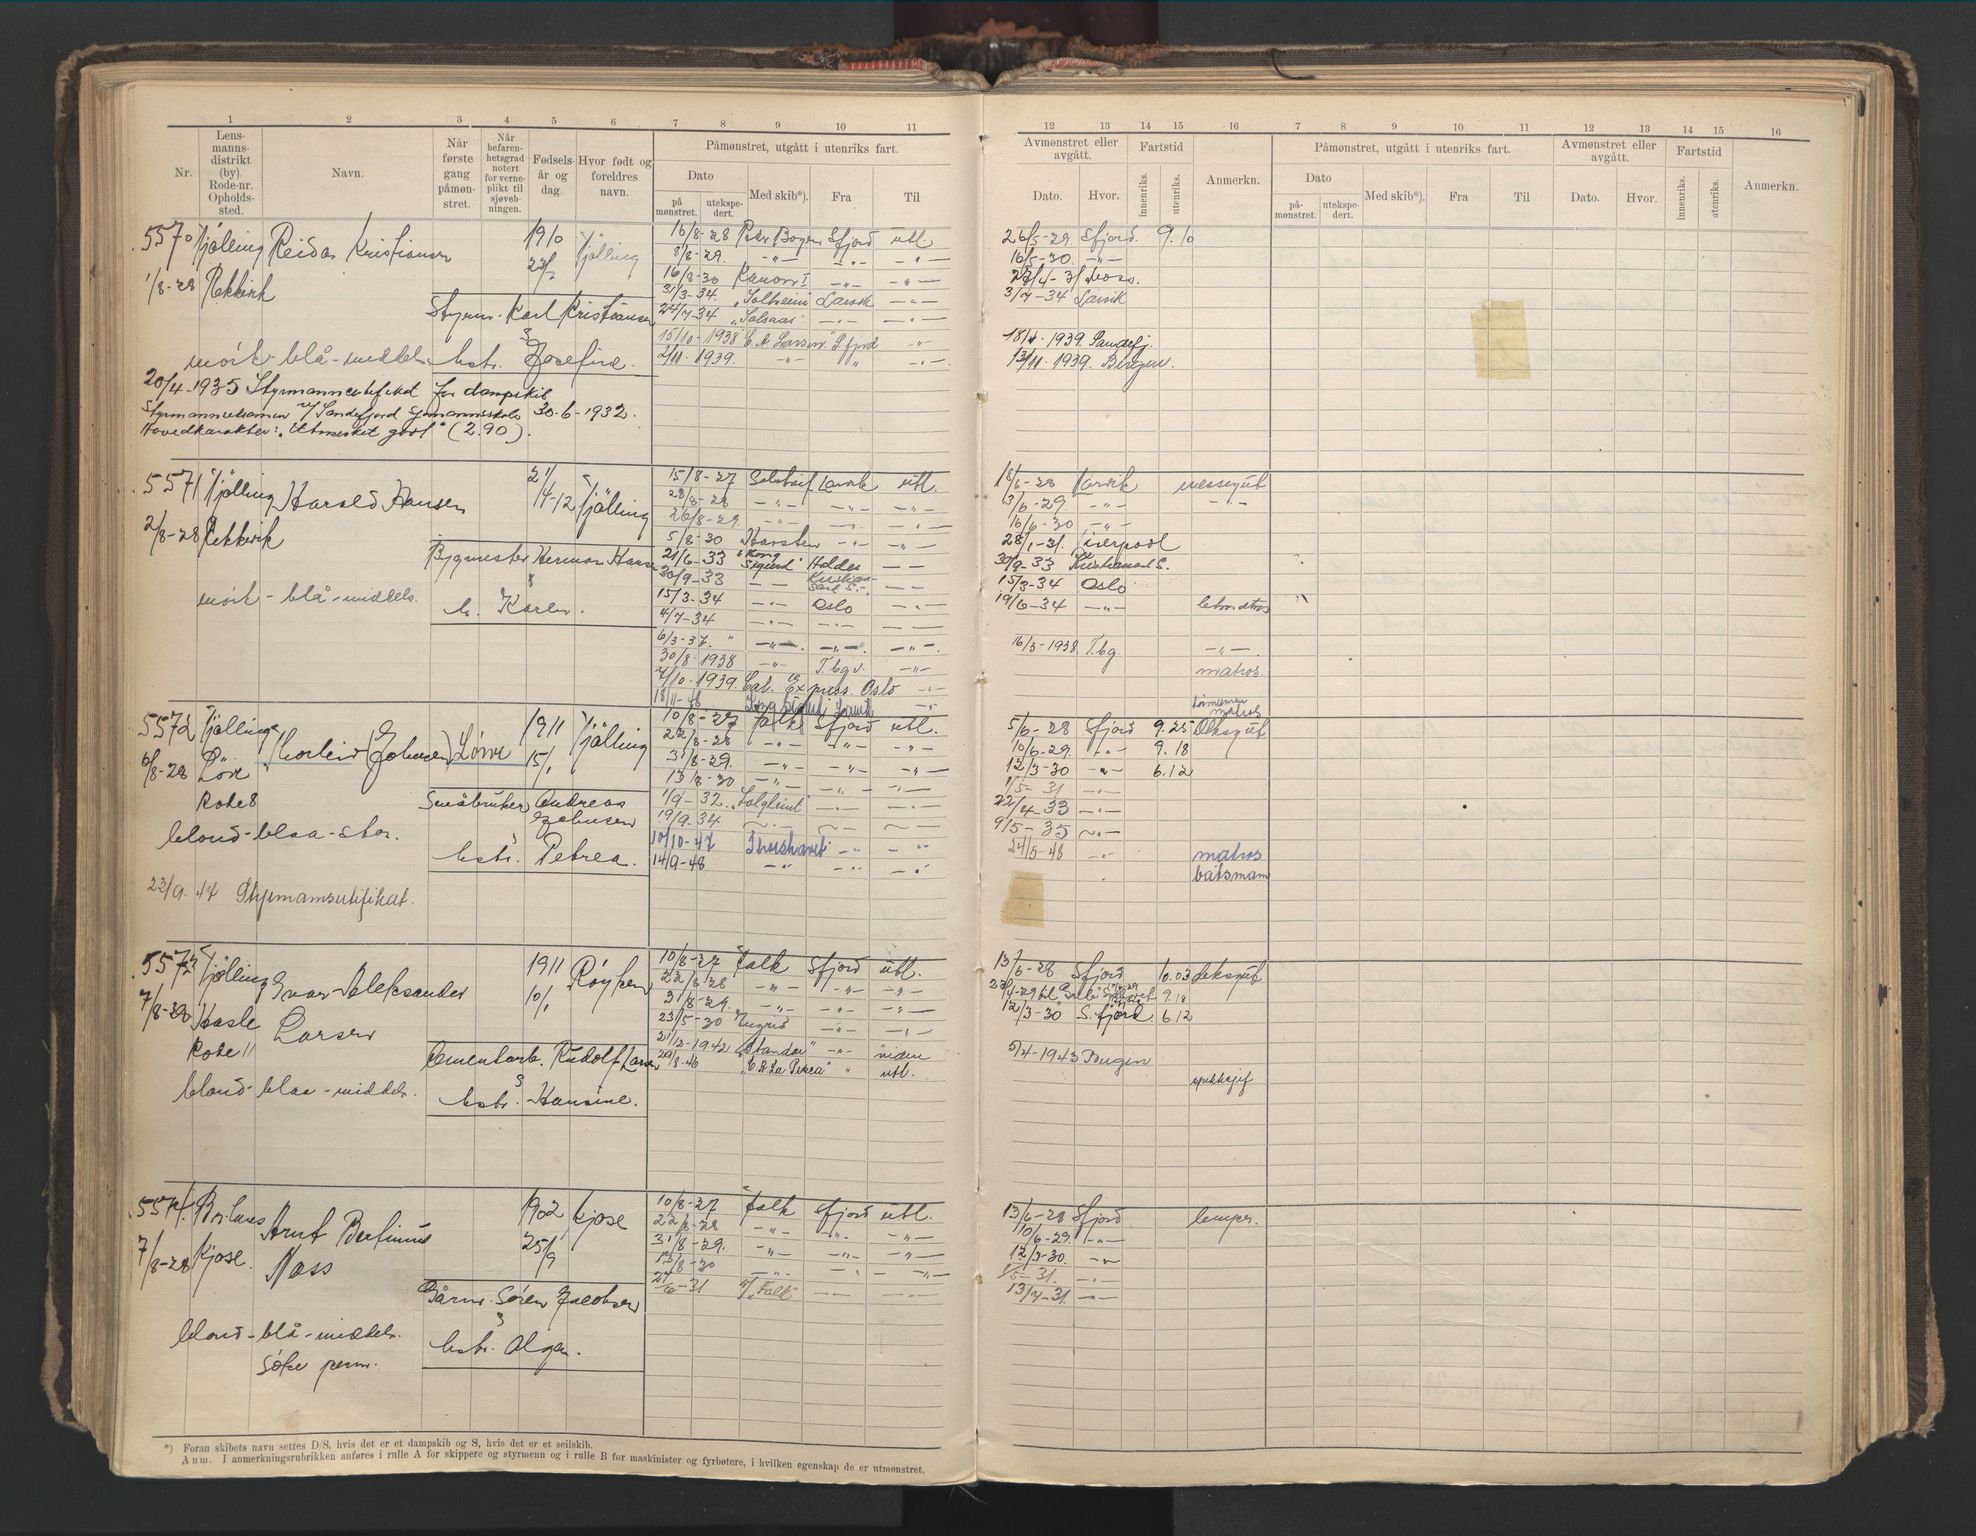 1 2 3 4 5 6 7 8 9 10 11
Nr.
Lens-
manns-
distrikt
(by).
Rode-nr.
Opholds-
sted.
Navn.
Når
første
gang
påmøn-
stret.
Når
befaren-
hetsgrad
notert
for verne-
plikt til
sjøveb-
ningen.
Fødsels-
år og
dag.
Hvor født og
foreldres
navn.
Påmønstret, utgått i utenriks fart.
Dato
på
mønstret.
utekspe-
dert.
Med skib*).
Fra
Til
12 13 14 15 16 7 8 9 10 11 12 13 14 15 16
Avmønstret eller
avgått.
Dato.
Hvor.
Fartstid
innenriks.
utenriks.
Anmerkn.
Påmønstret, utgått i utenriks fart.
Dato
på-
mønstret.
utekspe-
dert.
Med skib*).
Fra
Til
Avmønstret eller
avgått.
Dato.
Hvor.
Fartstid
innenriks.
utenriks.
Anmerkn.
5570 Tjølling Reidar Kristiansen 1910 Tjølling
1/8-28
Styrm. Karl Kristiansen
mørk-blå-middels hstr. Josefine.
20/4-1935 Styrmannsertifikat for dampskib
Styrmannseksamen v/ Sandefjord Sjømannsskole 30-6-1932.
Hovedkarakter: "Utmerket godt" (2.90).
16/8-28 Sfjord utl
1/8-29. -"- -"- -"-
16/8-30 Kanon I -"- -"-
31/3-34. "Solheim" Larvik -"-
24/7-34 "Solsaas" -"- -"-
15/10-1938 C. A. Larsen S.fjord -"-
2/11-1939. -"- "
26/5-29. Sfjord. 9.10
16/5-30. -"-
3/7-34 Larvik
18/4-1939. Sandefj.
13/11-1939. Bergen.
5571 Tjølling Harald Hansen 21/4-12 Tjølling
2/8-28
Bygmester Herman Hansen
mørk-blå-middels. h. Karen.
15/8-27 Larvik utl.
28/8-28 -"- -"- -"-
26/8-29. -"- -"- -"-
5/8-30 -"- -"-
21/6-33 "Kong Sigurd" - -
30/9-33 - - Kristian-
sand S.
15/3-34 -"- Oslo -"-
4/7-34 -"- -"- -"-
6/3-37. " -"- -"- -"-
30/8-1938 -"- T.bg v. -"-
7/10-1939. Oslo -"-
18/11-48
18/6-28 Larvik messegut
13/6-29. -"- -"-
16/6-30 -"-
28/1-31. Liverpool
30/9-33 Kristiansand S.
15/3-34 Oslo
19/6-34 -"-
16/3-1938 T.bg. -"-
matros.
matros
5572 Tjølling Thorleiv (Johnsen) Løwe 1911 Tjølling
6/8-28 Løve 15/1
Rode 8 Småbruker Andreas
Johnsen
blond-blaa-stor. hstr. Petrea.
23/9-44 Styrmannsertifikat.
10/8-27 Falk Sfjord utl.
22/8-28 -"- -"- -"-
31/8-29. -"- -"- -"-
13/8-30 -"-
1/9-32. "Solglimt" -"- -"-
19/9-34 -"- -"- -"-
10/10-47 Thorshavet -"- -"-
14/9-48 -"- " "
5/6-28 Sfjord 9.25 Dekksgut
10/6-29. -"- 9.18
12/3-30 -"- 6.12
1/5-31 -"-
22/4-33 -"-
9/5-35 -"-
24/5-48 -"- matros
båtsmann
5573 Tjølling Ivar Aleksander 1911 Røyken
7/8-28 Hasle Larsen 10/1
Rode 11
Cementarb. Rudolf Larsen
blond-blaa-middels. hstr. Hansine.
10/8-27 Falk Sfjord utl.
22/8-28 -"- -"- -"-
31/8-29. -"- -"- -"-
23/5-30 -"- -"-
21/12-1942 -"- viden
29/8-46 " utl.
13/6-28 Sfjord 10.03 dekksgut
12/3-30 S.fjord 6.12
5/4-1943
5574. Br.lanes Arnt Bertinius 1902 Kjose
7/8-28 Kjose. Nass 25/9
Gårdbr. Søren Jacobsen
blond-blå-middels. hstr. Olga.
10/8-27 Falk Sfjord utl.
22/8-28 -"- -"- -"-
31/8-29. -"- -"- -"-
13/8-30 -"- -"- -"-
27/6-31 "Falk" -"- -"-
13/6-28 Sfjord lemper.
10/6-29. -"-
12/3-30. -"-
1/5-31. -"-
13/7-31. -"-
*) Foran skibets navn settes D/S, hvis det er et dampskib og S, hvis det er et seilskib.
Anm. I anmerkningsrubrikken anføres i rulle A for skippere og styrmenn og i rulle B for maskinister og fyrbøtere, i hvilken egenskap de er utmønstret.